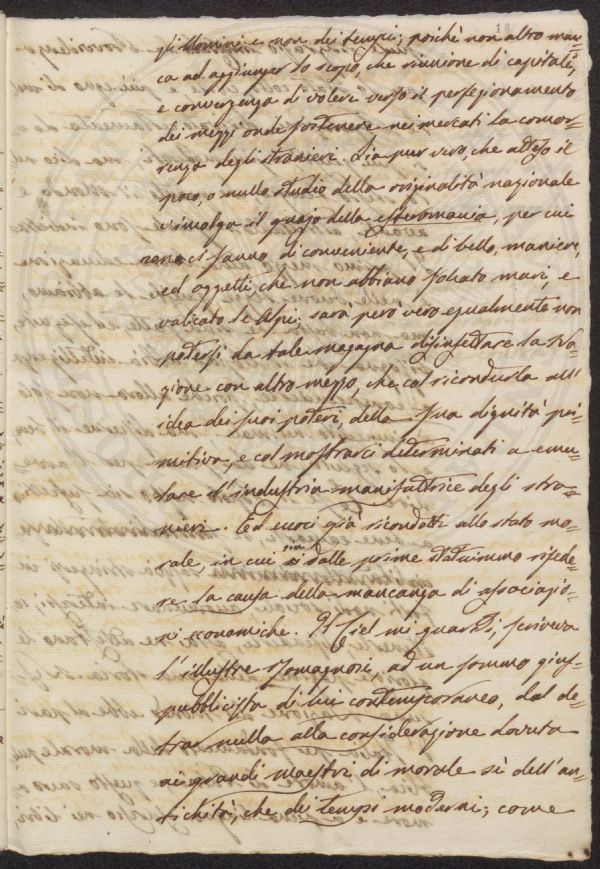 18
gli Uomini e non dei tempi; poichè non altro man=
ca ad aggiunger lo scopo, che riunione di capitali,
e convergenza di volere verso il perfezionamento
dei mezzi onde sostenere nei mercati la concor=
renza degli stranieri. Sia pur vero, che atteso il
poco, o nullo studio della originalità nazionale
rimolga il guajo della esteromania, per cui
non ci sanno di conveniente, e di bello, maniere,
ed oggetti, che non abbiano solcato mari, e
valicato le Alpi; sarà però vero egualmente non
potersi da tale magagna disinfettare la Na=
zione con altro mezzo, che col ricondurla all'
idea dei suoi poteri, della sua dignità pri=
mitiva, e col mostrarci determinati a emu=
lare l'industria manifattrice degli stra=
nieri. Ed eccoci già ricondotti allo stato mo=
rale, in cui sin dalle prime statuimmo risiede=
re la causa della mancanza di associazio=
ni economiche. Il Ciel mi guardi, scriveva
l'illustre Romagnosi, ad un sommo gius=
pubblicista di lui contemporaneo, dal de=
trar nulla alla considerazione dovuta
ai grandi maestri di morale sì dell'an=
tichità, che dei tempi moderni; come